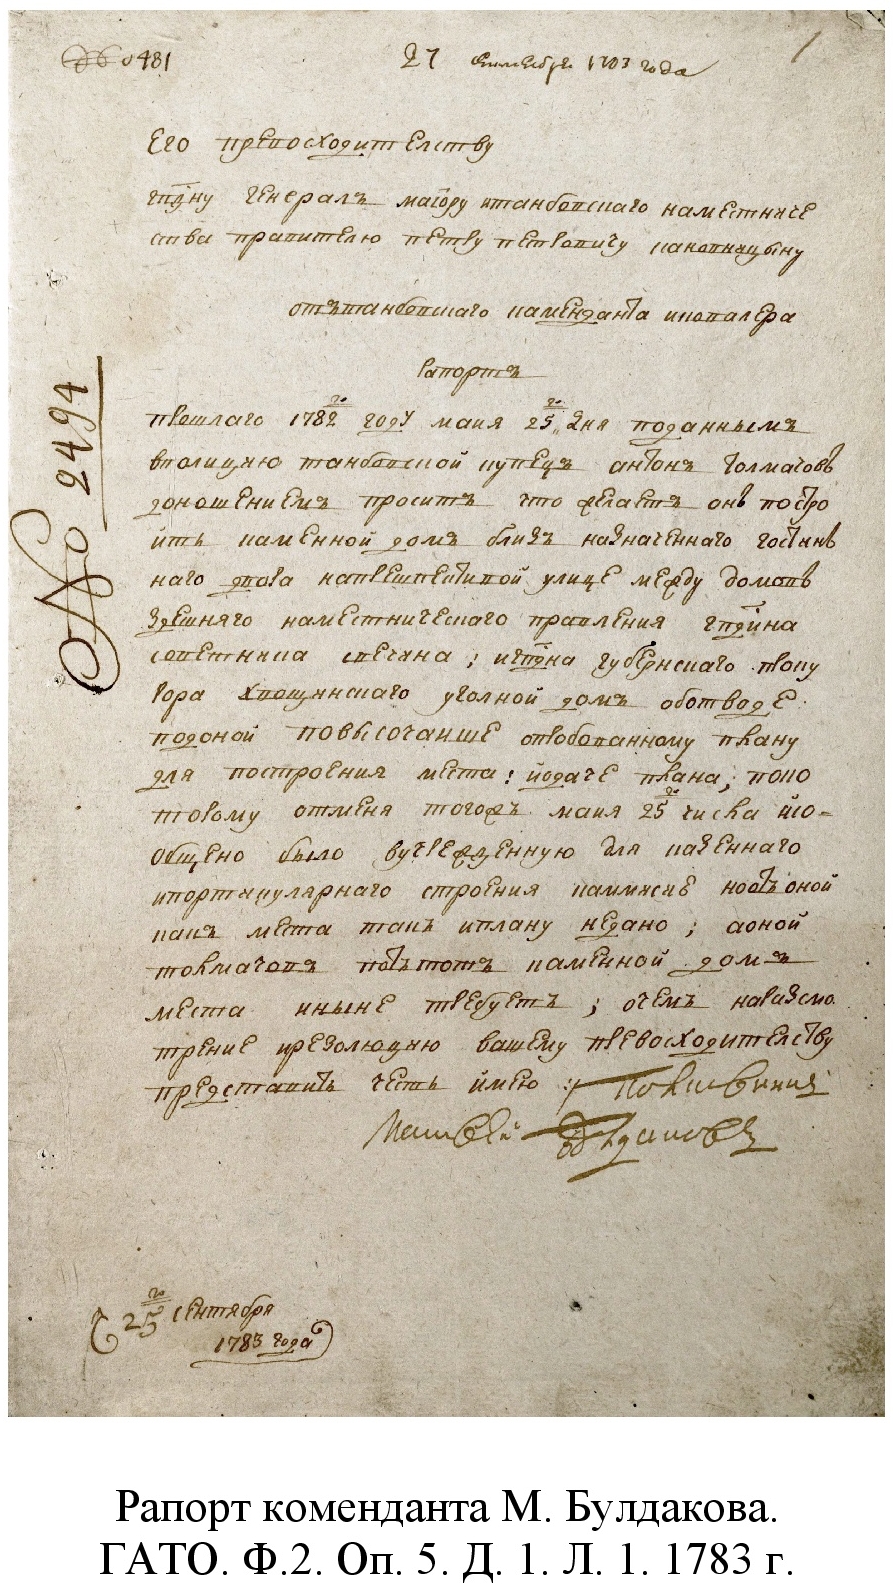 481
27 сентября 1783 года
1
Его превосходителству
гпдну генералъ маіору итанбовскаго наместниче
ства правителю петру петровичу канопницыну
отътанбовскаго каменданта икавалера
Рапортъ
прешлаго 1782го году маия 25го дня поданнымъ
вполицию танбовской купецъ антонъ толмачовъ
доношениемъ проситъ что желаетъ онъ постро
ить каменной домъ близъ назначеннаго гостинъ
наго двора напрешпективой улице между домовъ
здешняго наместническаго правления гпдина
советника свечина ; игпдна губернскаго проку
рора хвощинскаго уголной домъ оботводе
подоной повысочаише опробованному плану
для построения места : йодаче плана ; попо
тому отменя тогожъ маия 25го числа
общено было вучрежденную для казеннаго
ипортикулярнаго строения камисие ноотъоной
какъ места такъ иплану недано ; аоной
толмачовъ подътотъ каменной домъ
места иныне требуетъ ; очемъ наразсмо
трение ирезолюцию вашему превосходителству
представить честь имею :
Матвей Булдаковъ
25го сентября
1783 года
No 2494
Рапорт коменданта М. Булдакова.
ГАТО. Ф.2. Оп. 5. Д. 1. Л. 1. 1783 г.